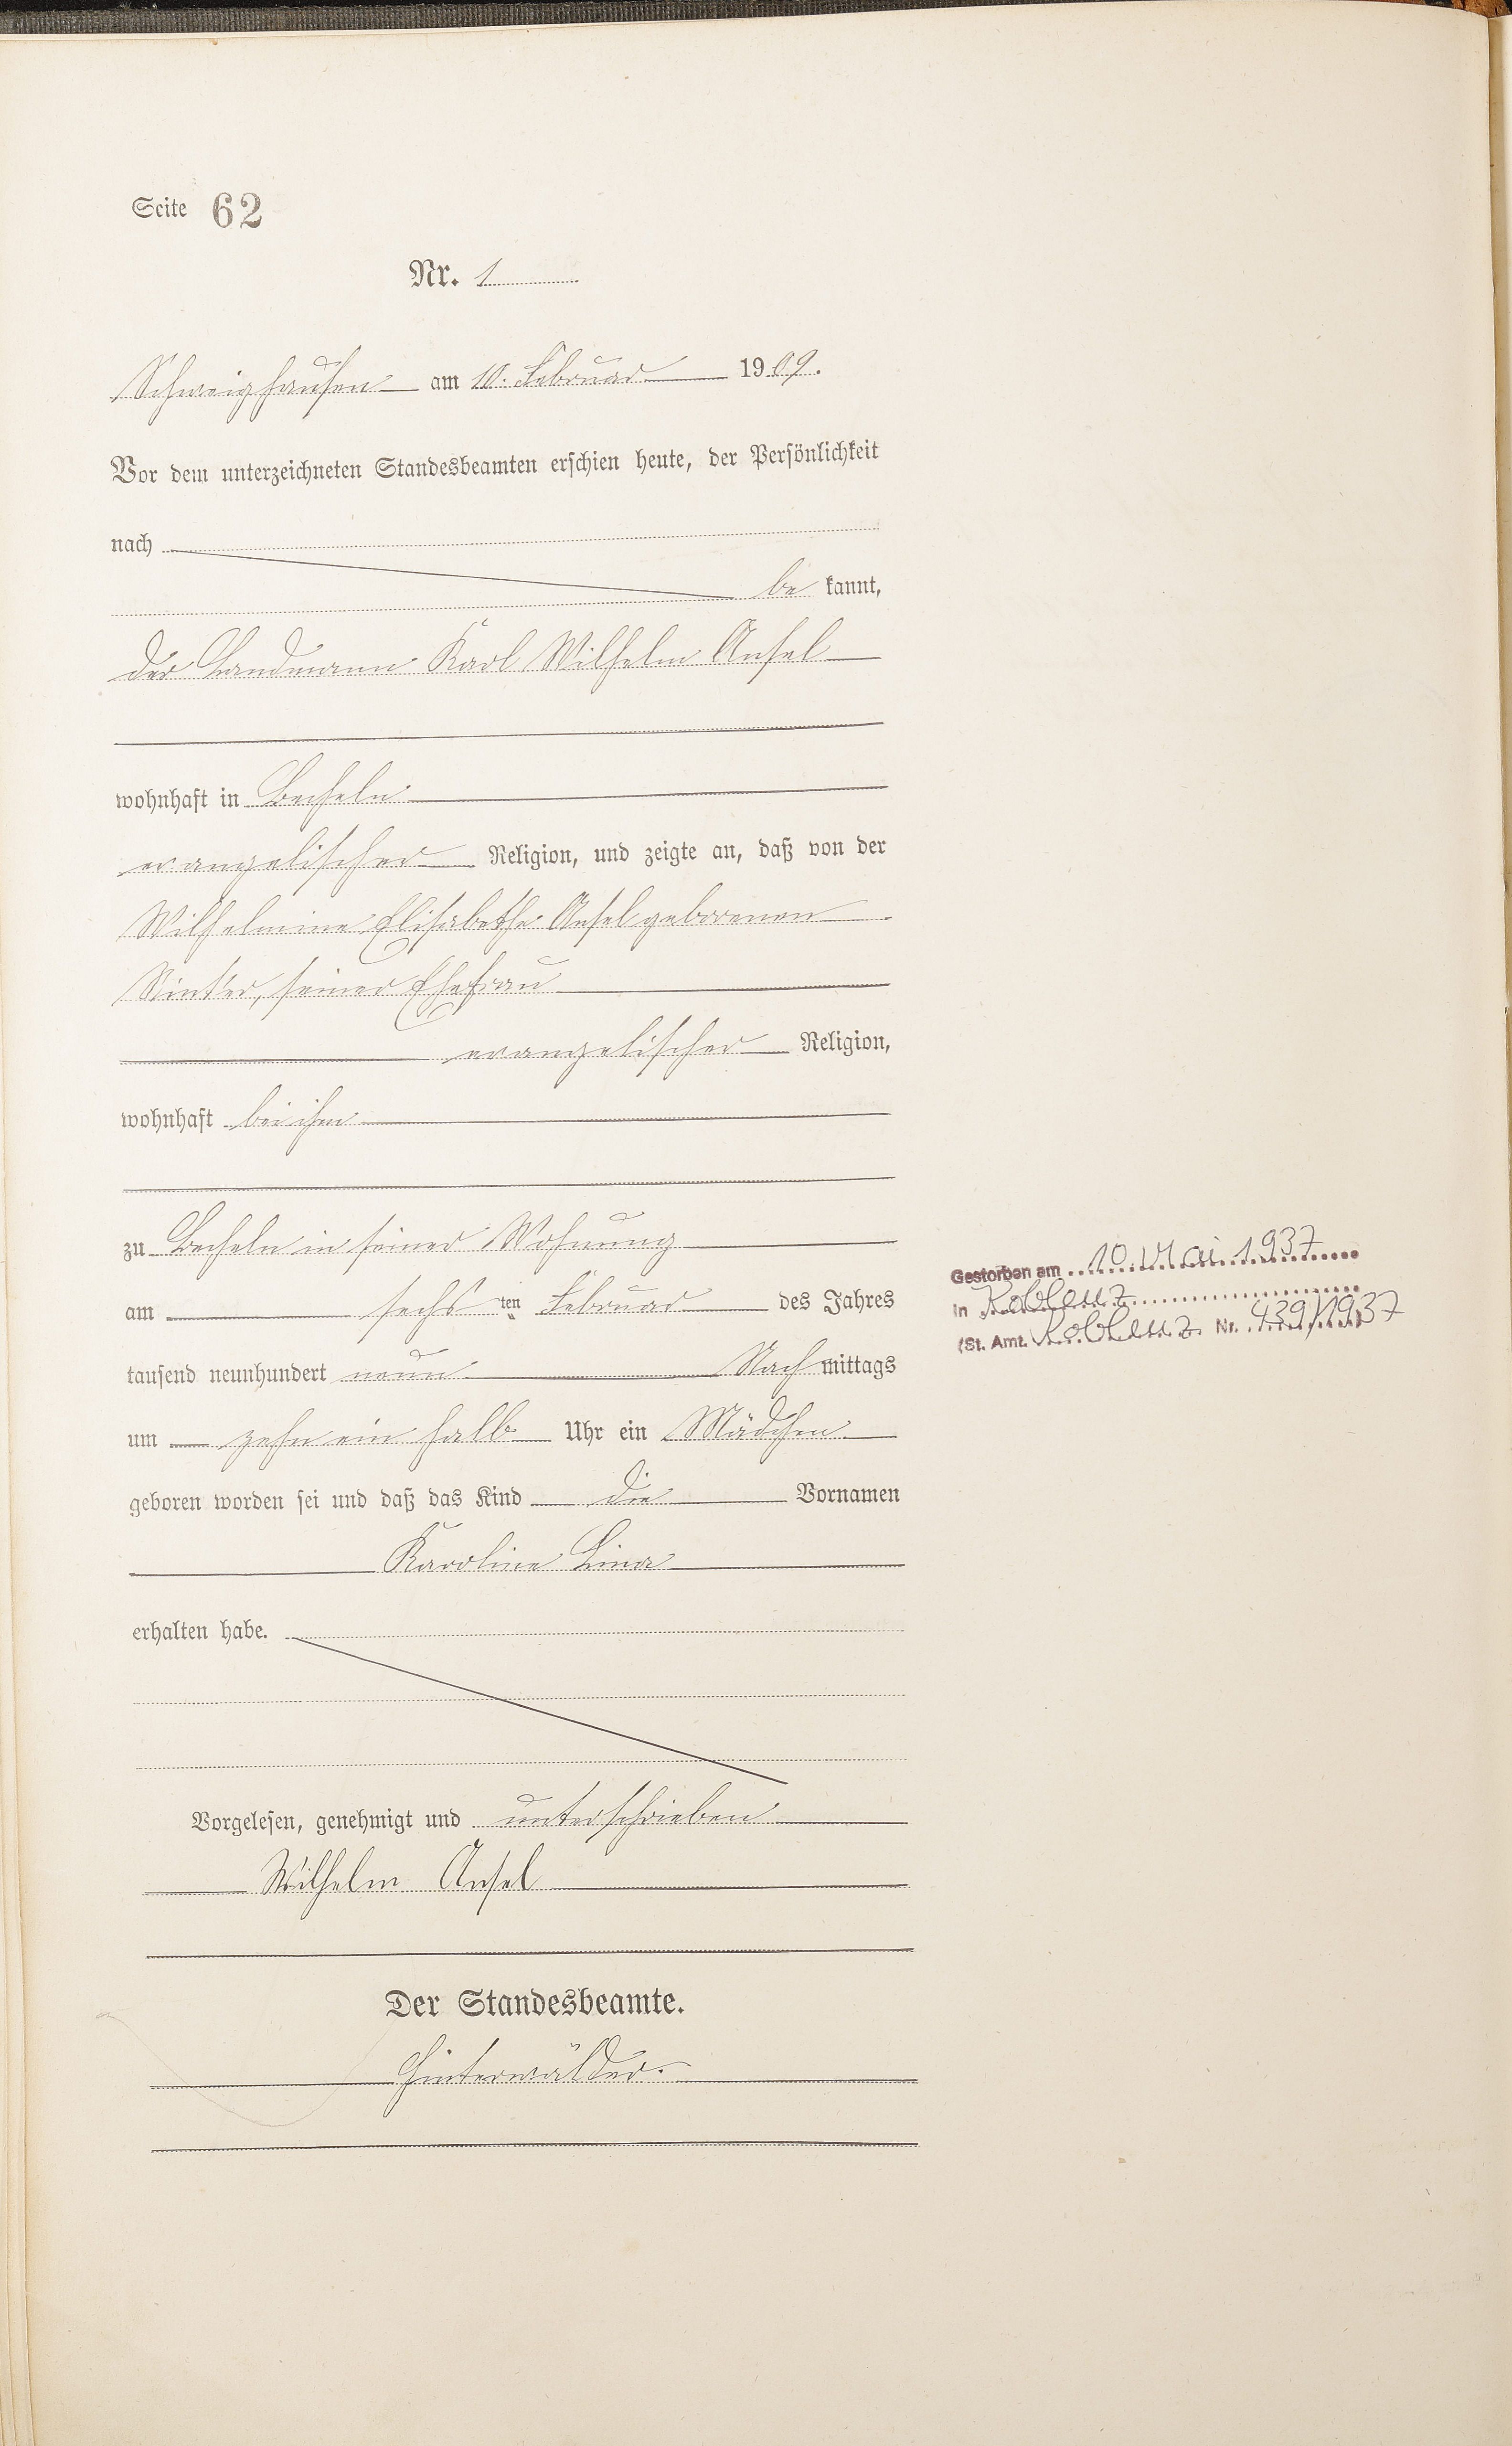 Seite 62
Nr. 1
Schweighausen am 10. Februar 1909.
Vor dem unterzeichneten Standesbeamten erschien heute, der Persönlichkeit
nach
be kannt,
der Landmann Karl Wilhelm Ansel
wohnhaft in Becheln
evangelischer Religion, und zeigte an, daß von der
Wilhelmine Elisabethe Ansel geborenen
seiner Ehefrau
evangelischer Religion,
wohnhaft bei ihm
zu Becheln in seiner Wohnung
am sechs ten Februar des Jahres
tausend neunhundert neun Nach mittags
um zehn ein halb Uhr ein Mädchen
geboren worden sei und daß das Kind die Vornamen
Karoline Lina
erhalten habe.
Vorgelesen, genehmigt und unterschrieben
Wilhelm Ansel
Der Standesbeamte.
Hinterwälder.
Gestorben am 10. Mai 1937
in Koblenz
(St. Amt. Koblenz Nr. 439/1937)